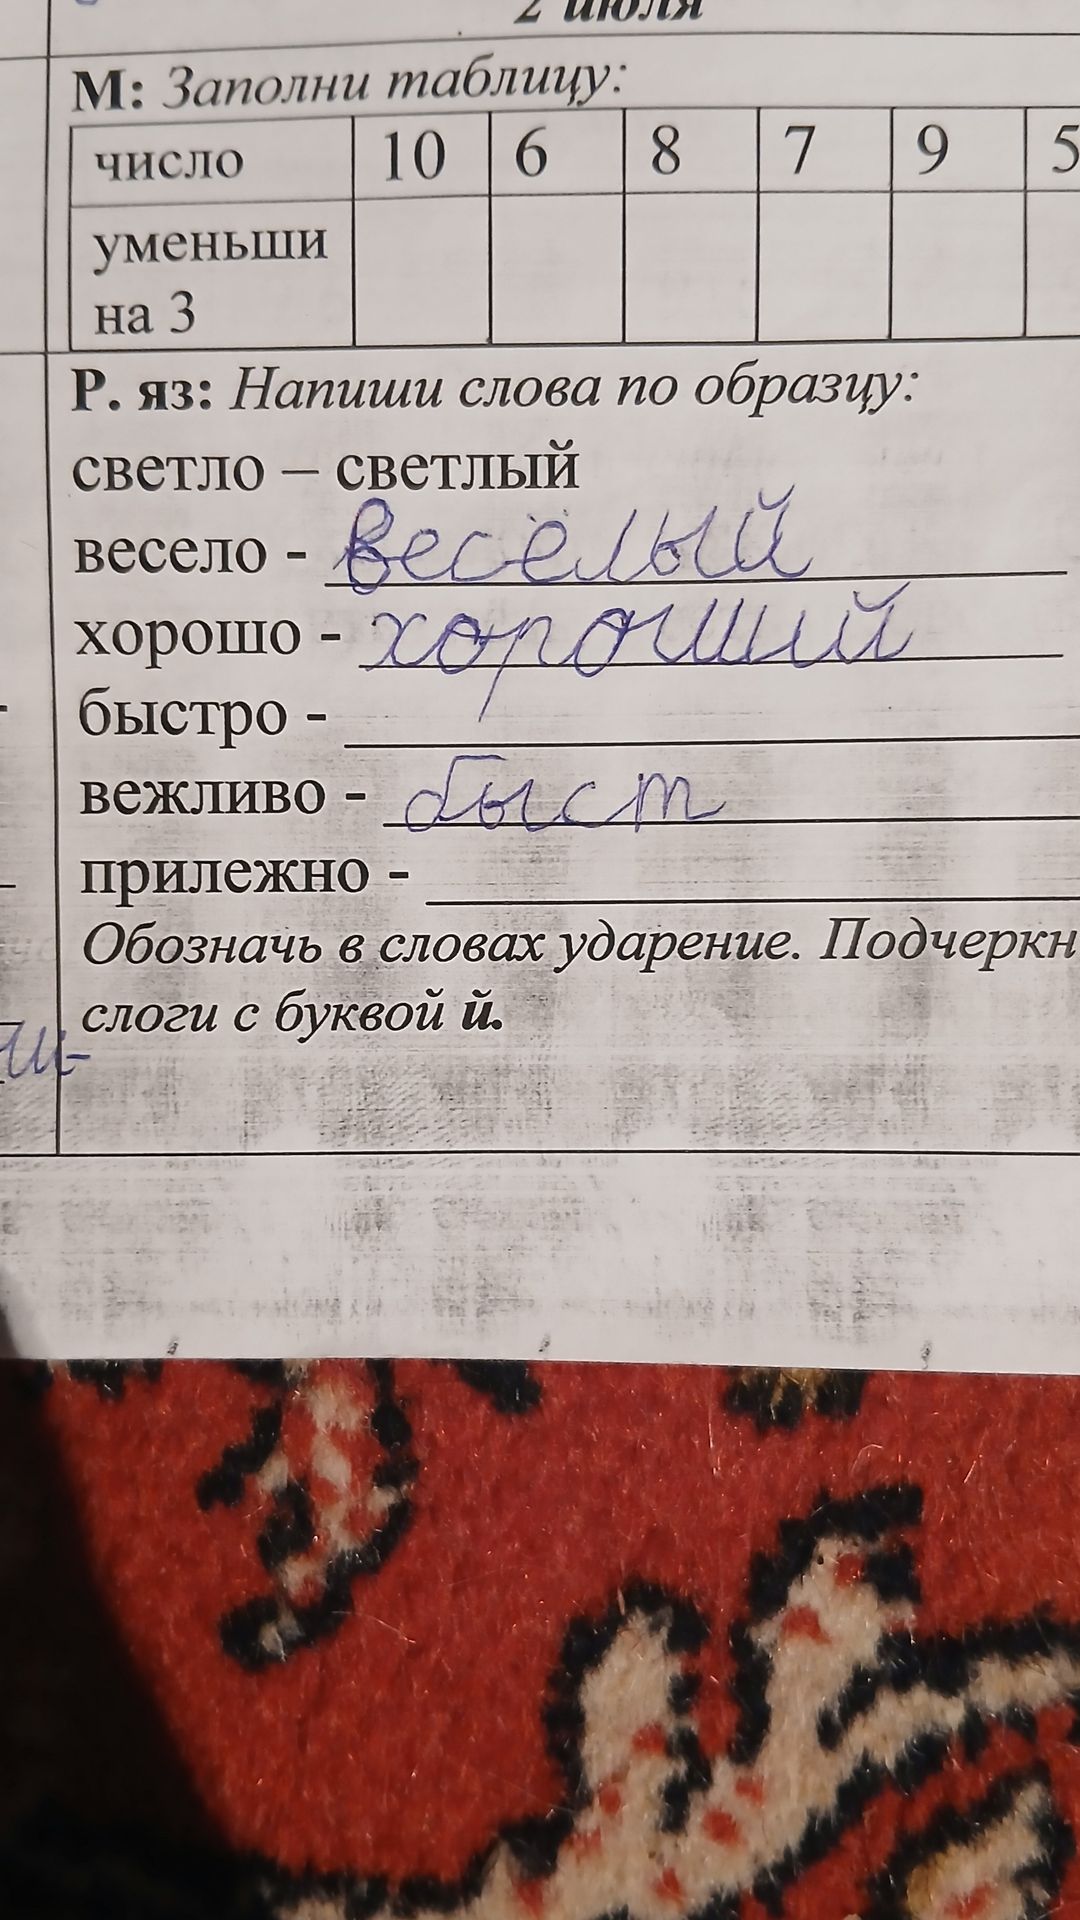 2 июля
М: Заполни таблицу:
число 10 6 8 7 9 5
уменьши
на 3
Р. яз: Напиши слова по образцу:
светло – светлый
весело - весёлый
хорошо - хороший
быстро -
вежливо - быст
прилежно -
Обозначь в словах ударение. Подчеркн
слоги с буквой й.